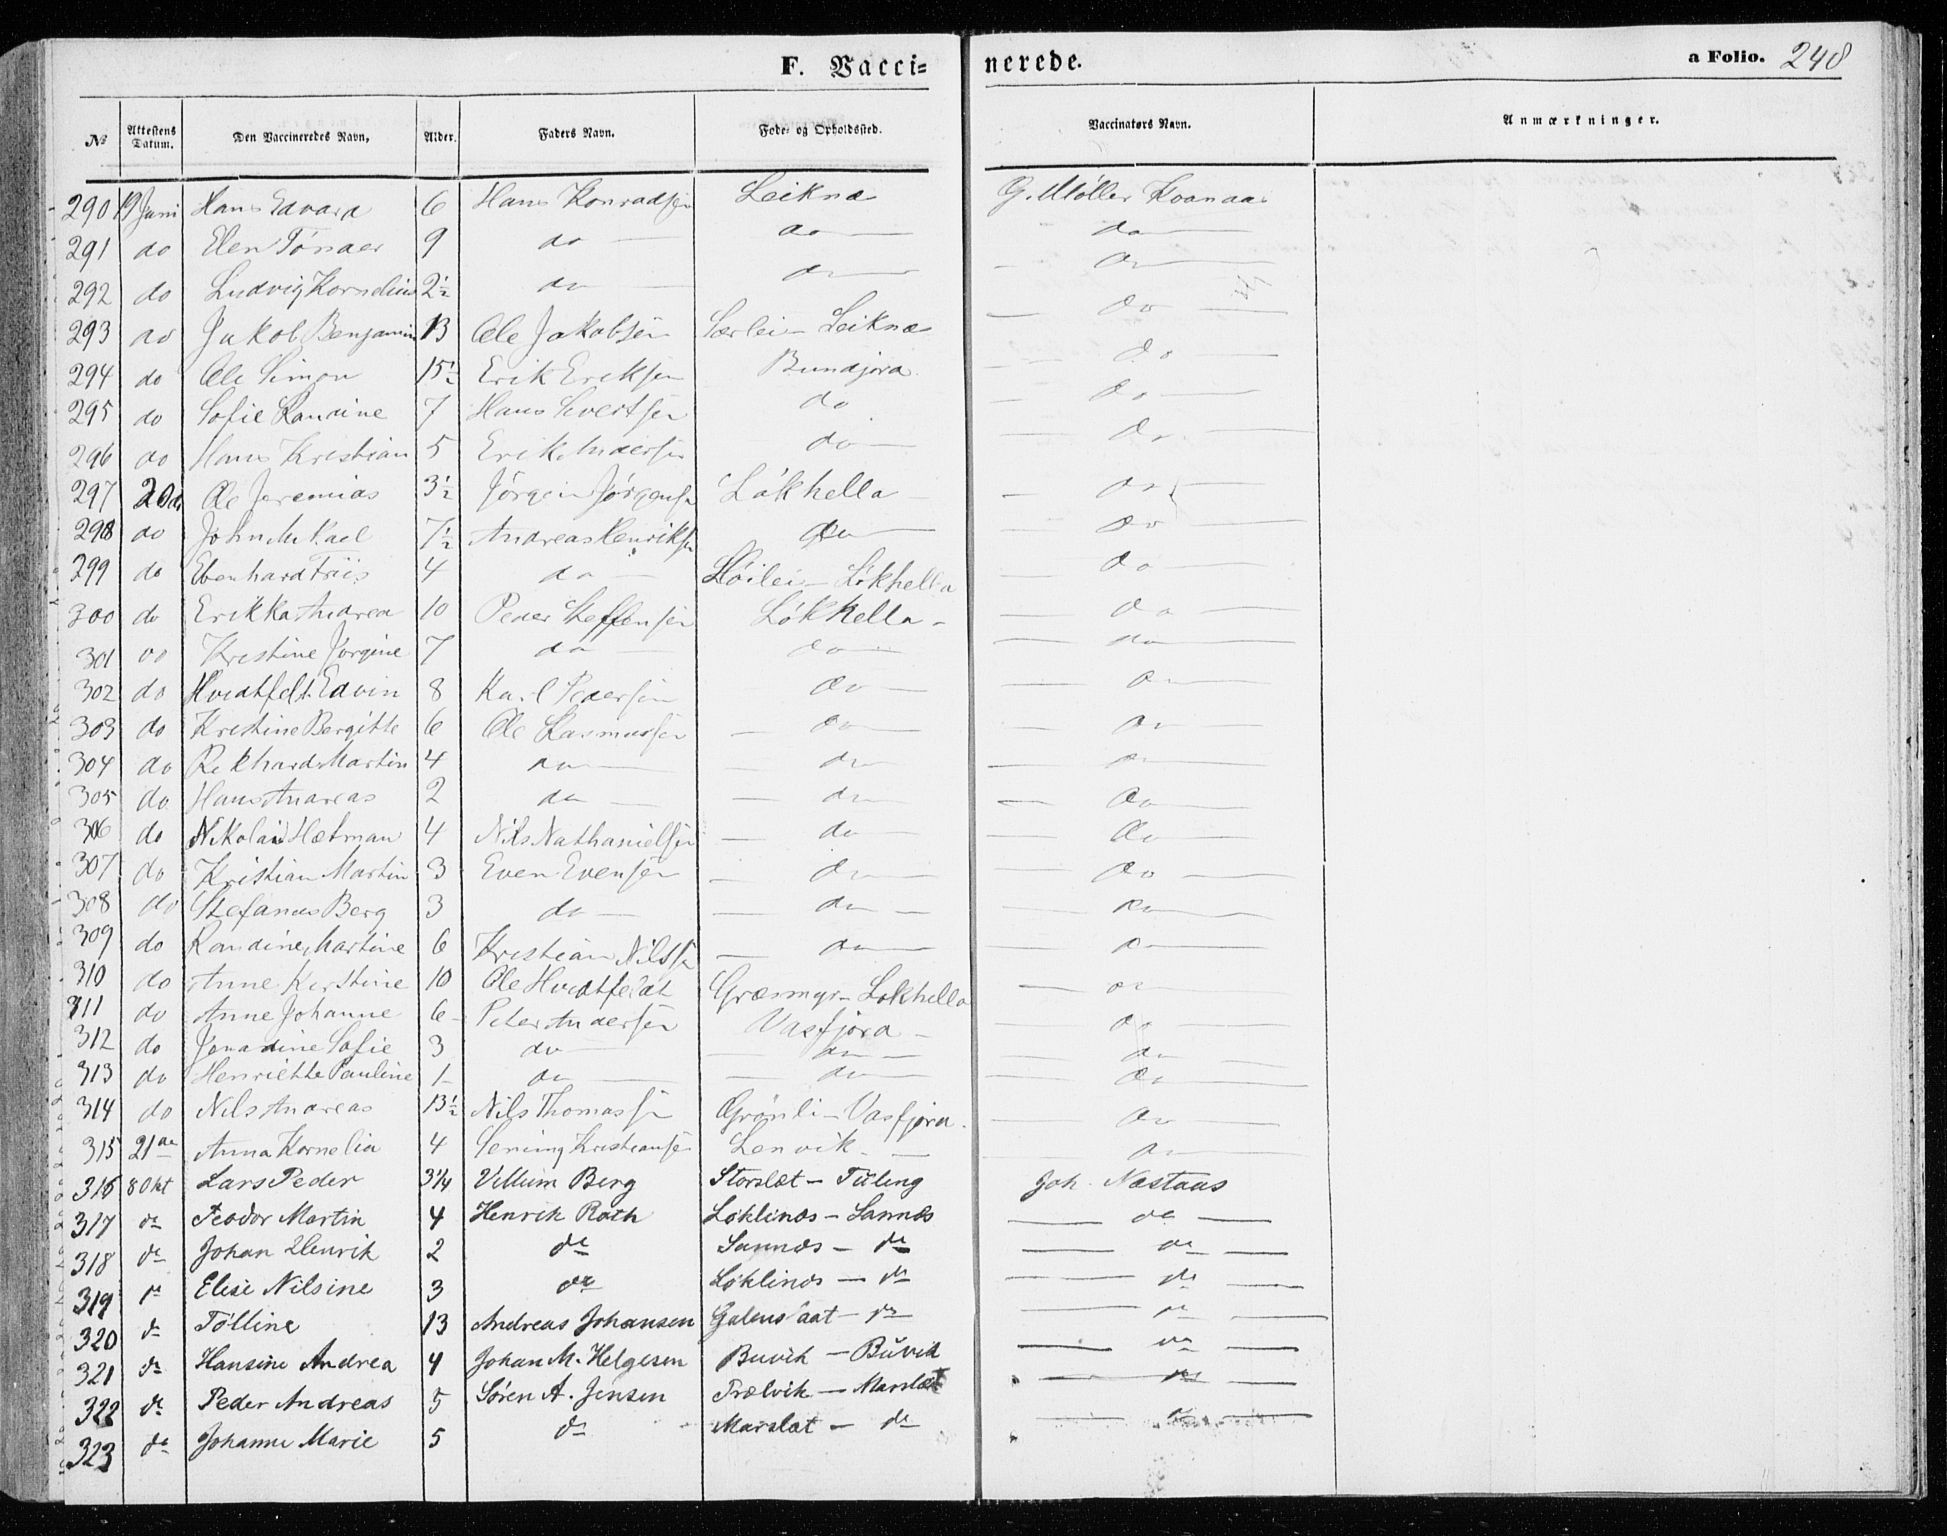 F. Vacci= nerede. a Folio. 248
No Attestens Datum. Den Vaccineredes Navn, Alder. Faders Navn. Føde- og Opholdssted. Vaccinatørs Navn. Anmærkninger.
290 19 Juni Hans Edvard 6 Hans Konradsen Leiknæ G. Møller Kvanaa
291 do Elen Tønder 9 do do do
292 do Ludvig Kornelius 2½ do do do
293 do Jakob Benjamin 13 Ole Jakobsen Sørlei - Leiknæ do
294 do Ole Simon 15½ Erik Eriksen Bundjora do
295 do Sofie Randine 7 Hans Sivertsen do do
296 do Hans Kristian 5 Erik Andersen do do
297 20 do Ole Jeremias 3½ Jørgen Jørgensen Løkhella do
298 do John Mikael 7½ Andreas Henriksen do do
299 do Ebenhard Friis 4 do Høilei - Løkhella do
300 do Erikka Andrea 10 Peder Steffensen Løkhella - do
301 do Kristine Jørgine 7 do do do
302 do Hvidtfelt Edvin 8 Karl Pedersen do do
303 do Kristine Bergitte 6 Ole Rasmussen do do
304 do Rikhard Martin 4 do do do
305 do Hans Andreas 2 do do do
306 do Nikolai Hetman 4 Nils Nathanielsen do do
307 do Kristian Martin 3 Even Evensen do do
308 do Stefanus Berg 3 do do do
309 do Randine Martine 6 Kristian Nilssen do do
310 do Anne Kirstine 10 Ole Hvidtfeldt Græsmyr - Løkhella do
311 do Anne Johanne 6 Peter Andersen Vasfjora do
312 do Jonadine Sofie 3 do do do
313 do Henriette Pauline 1 do do do
314 do Nils Andreas 13½ Nils Thomassen Grønli - Vasfjora do
315 21 do Anna Kornelia 4 Hening Kristiansen Lenvik do
316 8 Okt Lars Peder 3¼ Villum Berg Storslæt - Tüling Joh. Næstaas
317 do Teodor Martin 4 Henrik Rath Løklinds - Sannæs do
318 do Johan Henrik 2 do Sannæs - do do
319 do Elise Nilsine 3 do Løklinds - do do
320 do Tølline 13 Andreas Johansen Galensaat - do do
321 do Hansine Andrea 4 Johan M. Helgesen Buvik - Büvik do
322 do Peder Andreas 5 Søren A. Jensen Trælvik - Marslæt do
323 do Johanne Marie 5 do Marslæt - do do